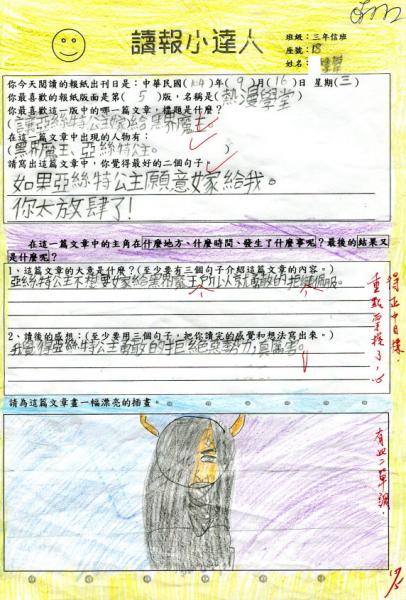 讀報小達人
班級：三年信班
座號：18
姓名：
你今天閱讀的報紙出刊日是：中華民國(104)年(9)月(16)日 星期(三)
你最喜歡的報紙版面是第(5)版，名稱是(熱漫學堂)
你最喜歡這一版中的哪一篇文章，標題是什麼？
(黑亞絲特公主嫁給黑界魔王。)
在這一篇文章中出現的人物有：
(黑界魔王、亞絲特公主。)
請寫出這篇文章中，你覺得最好的二個句子。
如果亞絲特公主願意嫁給我。
你太放肆了！
在這一篇文章中的主角在什麼地方、什麼時間、發生了什麼事呢？最後的結果又
是什麼呢？
1、這篇文章的大意是什麼？(至少要有三個句子介紹這篇文章的內容。)
亞絲特公主不想要嫁給黑界魔王，所以就勇敢的拒絕
2、讀後的感想：(至少要用三個句子，把你讀完的感覺和想法寫出來。)
我覺得亞絲特公主勇敢的拒絕惡勢力，真厲害。
請為這篇文章畫一幅漂亮的插畫。
有些單調．